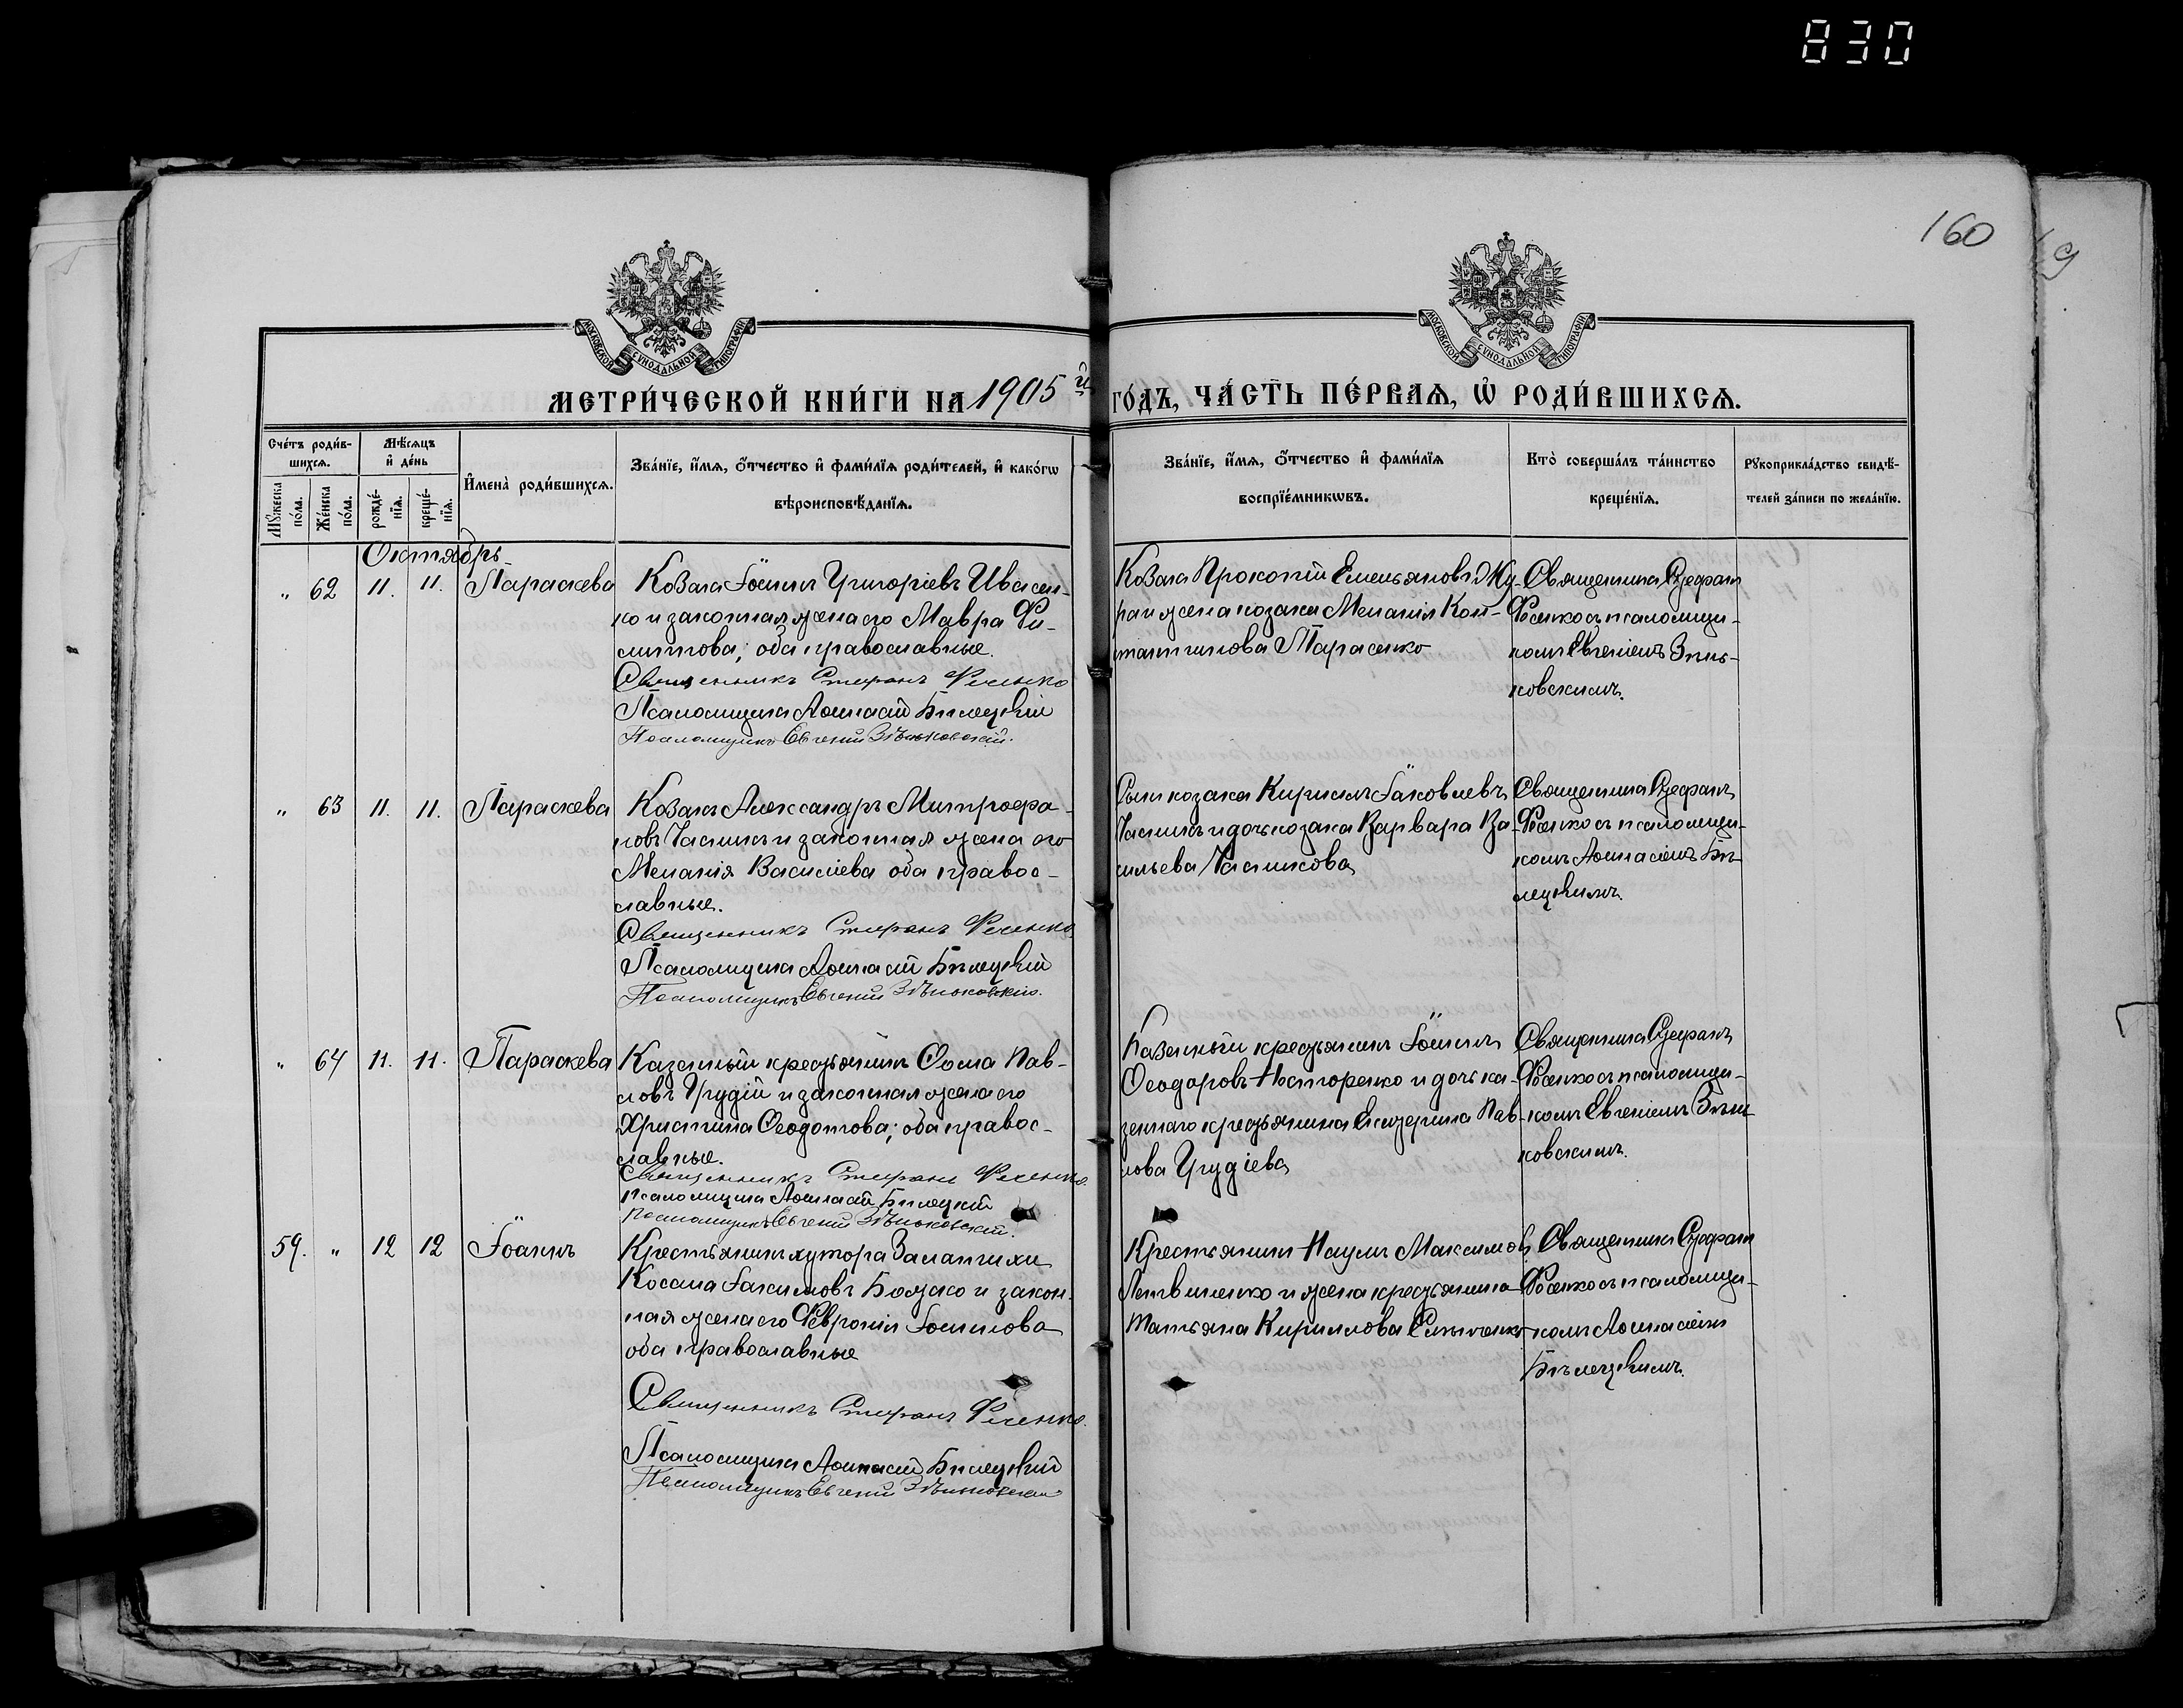 830
160
9
МОСКОВСКОЙ СУНОДАЛЬНОЙ ТИПОГРАФІИ
МОСКОВСКОЙ СУНОДАЛЬНОЙ ТИПОГРАФІИ
МЕТРИ́ЧЕСКОЙ КНИ́ГИ НА 1905й
ГО́ДЪ, ЧА́СТЬ ПЕ́РВАЯ, Ѡ҆ РОДИ́ВШИХСЯ.
Сче́тъ роди́в-
шихсѧ.
Мѣ́сѧцъ
и҆ де́нь
Мꙋ́жеска
по́ла.
Же́нска
по́ла.
рожде́-
нїѧ.
креще́-
нїѧ.
И҆мена̀ роди́вшихсѧ.
Зва́нїе, и҆́мѧ, ѻ҆́тчество и҆ фами́лїѧ роди́телей, и҆ како́гѡ
вѣроисповѣ́данїѧ.
Зва́нїе, и҆́мѧ, ѻ҆́тчество и҆ фами́лїѧ
воспрїе́мникѡвъ.
Кто̀ соверша́лъ та́инство
креще́нїѧ.
Рꙋкоприкла́дство свидѣ́-
телей за́писи по жела́нїю.
Октябрь
„ 62 11. 11. Параскева
Козакъ Іоаннъ Григоріевъ Ивасен-
ко и законная жена его Мавра Фи-
липпова; оба православные.
Священникъ Стефанъ Фесенко
Псаломщикъ Аѳанасій Билецкій
Псаломщикъ Евгеній Зѣньковскій.
Козакъ Прокопій Емельяновъ
ра и жена козака Меланія Кон-
стантинова Тарасенко
Священникъ Стефанъ
Фесенко съ псаломщи-
комъ Евгеніемъ Зѣнь-
ковскимъ.
„ 63 11. 11. Параскева
Козакъ Александръ Митрофа-
новъ Чалыкъ и законная жена его
Меланія Василіева оба правос-
лавные.
Священникъ Стефанъ Фесенко
Псаломщикъ Аѳанасій Билецкій
Псаломщикъ Евгеній Зѣньковскій.
Сынъ козака Кириллъ Іаковлевъ
и дочь козака Варвара Ва-
сильева
Священникъ Стефанъ
Фесенко съ псаломщи-
комъ Аѳанасіемъ Би-
лецкимъ.
„ 64 11. 11. Параскева
Казенный крестьянинъ Ѳома Пав-
ловъ и законная жена его
Христина Ѳеодотова; оба правос-
лавные.
Священникъ Стефанъ Фесенко.
Псаломщикъ Аѳанасій Билецкій
Псаломщикъ Евгеній Зѣньковскій.
Казенный крестьянинъ Іоаннъ
Ѳеодоровъ Несторенко и дочь ка-
зеннаго крестьянина Екатерина Пав-
лова
Священникъ Стефанъ
Фесенко съ псаломщи-
комъ Евгеніемъ Зѣнь-
ковскимъ.
59. „ 12 12 Іоаннъ
Крестьянинъ хутора
Косма Іакимовъ Божко и закон-
ная жена его Февронія Іоаннова
оба православные
Священникъ Стефанъ Фесенко.
Псаломщикъ Аѳанасій Билецкій
Псаломщикъ Евгеній Зѣньковскій
Крестьянинъ Наумъ Максимовъ
Литвиненко и жена крестьянина
Татьяна Кириллова
Священникъ Стефанъ
Фесенко съ псаломщи-
комъ Аѳанасіемъ
Бѣлецкимъ.